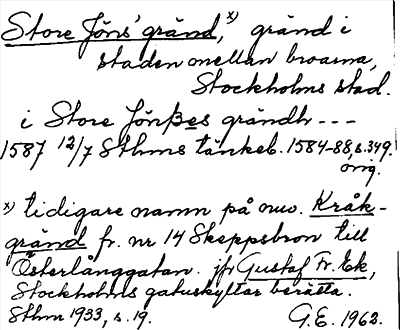 Store Jöns' gränd, x) gränd i
staden mellan broarna,
Stockholms stad.
i Store Jönßes grändh ---
1587 12/7 Sthms tänkeb. 1584-88, s. 349.
orig.
x) tidigare namn på nuv. Kråk-
gränd fr. nr 14 Skeppsbron till
Österlånggatan. jfr Gustaf Fr. Ek,
Stockholms gatuskyltar berätta.
Sthm 1933, s. 19. G.E. 1962.